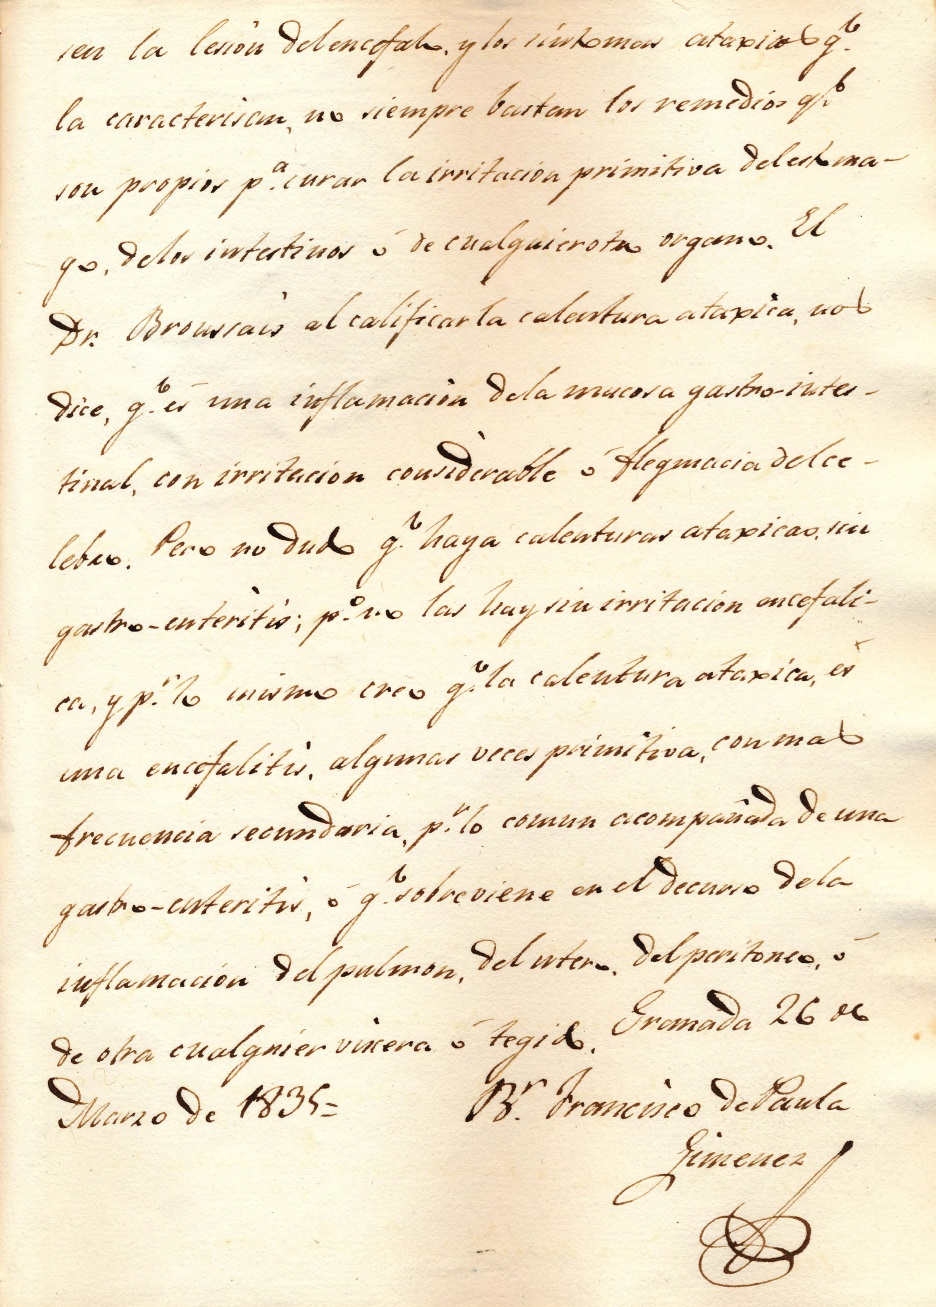 sen la lesión del encefalo, y los sintomas ataxicos q.e
la caracterisan, no siempre bastan los remedios q.e
son propios p.a curar la irritacion primitiva del estoma-
go, de los intestinos ó de cualquier otro organo. El
Dr. Broussais al calificar la calentura ataxica, nos
dice, q.e és una inflamacion de la mucosa gastro-intes-
tinal, con irritacion considerable ó flegmacia del ce-
lebro. Pero no dudo q.e haya calenturas ataxicas, sin
gastro-enteritis; p.o no las hay sin irritacion encefali-
ca, y p.r lo mismo creo q.e la calentura ataxica, és
una encefalitis, algunas veces primitiva, con mas
frecuencia secundaria, p.r lo comun acompañada de una
gastro-enteritis, ó q.e sobreviene en el decurso de la
inflamacion del pulmon, del utero, del peritoneo, ó
de otra cualquier viscera ó tegido. Granada 26 de
Marzo de 1835=
B.r Francisco de Paula
Gimenez